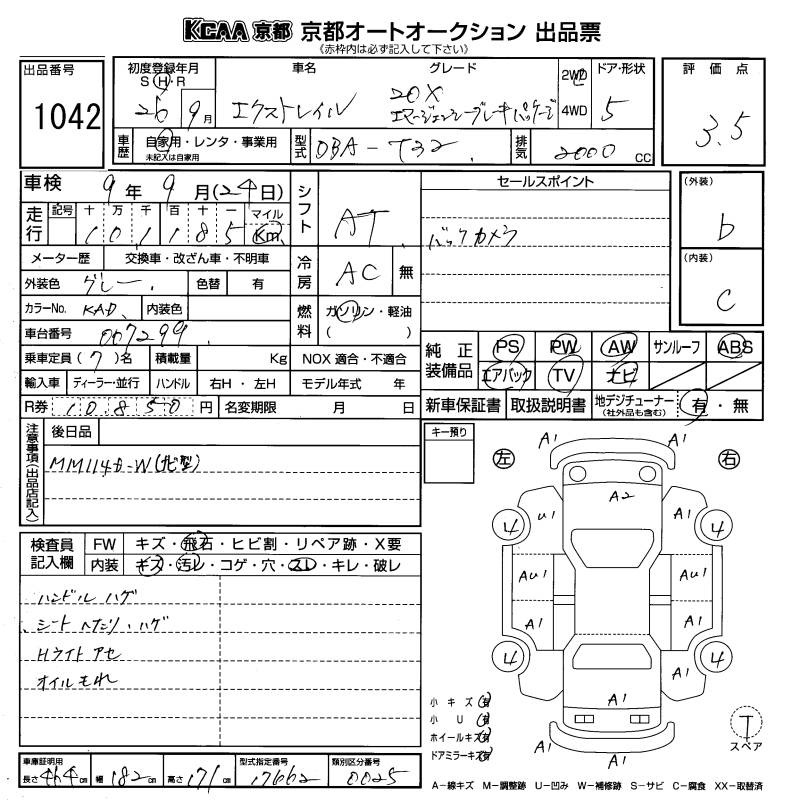 KCAA 京都 京都オートオークション 出品票
《赤枠内は必ず記入して下さい》
出品番号
1042
初度登録年月
S H R
26 9月
車名
エクストレイル
グレード
20X
エマージェンシーブレーキパッケージ
2WD
4WD
ドア・形状
5
評価点
3.5
車歴
自家用・レンタ・事業用
未記入は自家用
型式
DBA-T32
排気
2000 CC
車検 9年 9月(24日)
走行
記号 十 万 千 百 十 一 マイル
101185 Km
メーター歴 交換車・改ざん車・不明車
外装色 グレー 色替 有
カラーNo. KAD 内装色
車台番号 007299
乗車定員(7)名 積載量 Kg
輸入車 ディーラー・並行 ハンドル 右H・左H
R券 10850円 名変期限 月 日
シフト AT
冷房 AC 無
燃料 ガソリン・軽油
( )
NOX 適合・不適合
モデル年式 年
セールスポイント
バックカメラ
(外装)
b
(内装)
C
純正装備品
PS PW AW サンルーフ ABS
エアバック TV ナビ
新車保証書 取扱説明書 地デジチューナー
(社外品も含む)
有・無
注意事項(出品店記入)
後日品
MM114D-W(ナビ型)
キー預り
検査員記入欄
FW キズ・飛石・ヒビ割・リペア跡・X要
内装 キズ・汚レ・コゲ・穴・スレ・キレ・破レ
ハンドル ハゲ
シート ヘタリ・ハゲ
Hライト アセ
オイルもれ
左 右
A1 A1
A2
U1 A1
4 4
AU1 AU1
A1 A1
4 4
A1
A1
A1 A1
小キズ(有)
小U(有)
ホイールキズ(有)
ドアミラーキズ(有)
T
スペア
車庫証明用
長さ 464cm 幅 182cm 高さ 171cm
型式指定番号
17662
類別区分番号
0025
A-線キズ M-調整跡 U-凹み W-補修跡 S-サビ C-腐食 XX-取替済